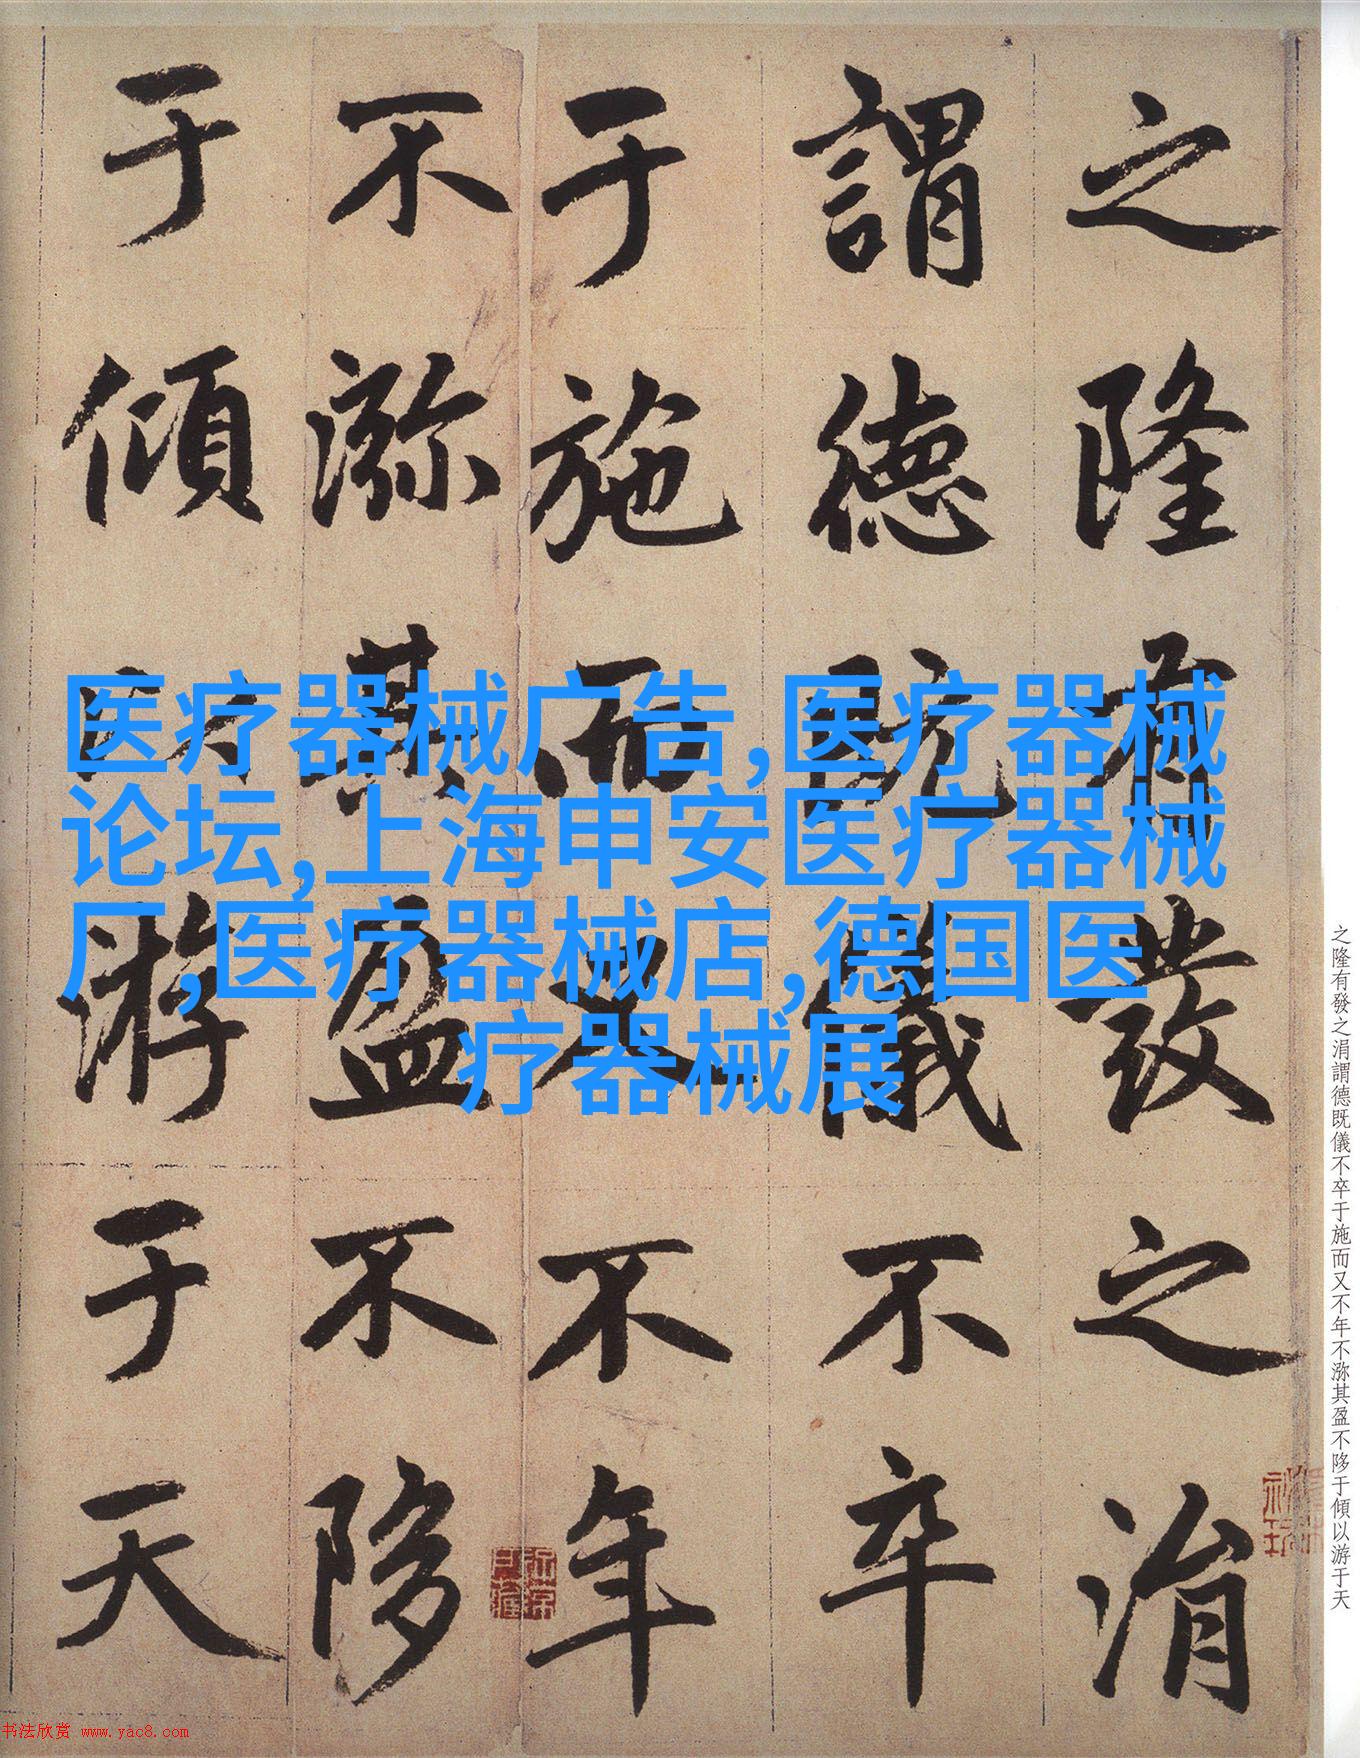 之隆有發之涓
謂德既儀不卒
于施而又不年
不㳽其盈不陊
于傾以游于天
医疗器械广告,医疗器械
论坛,上海申安医疗器械
厂,医疗器械店,德国医
疗器械展
之隆有發之涓謂德既儀不卒于施而又不年不㳽其盈不陊于傾以游于天
书法欣赏 www.yac8.com